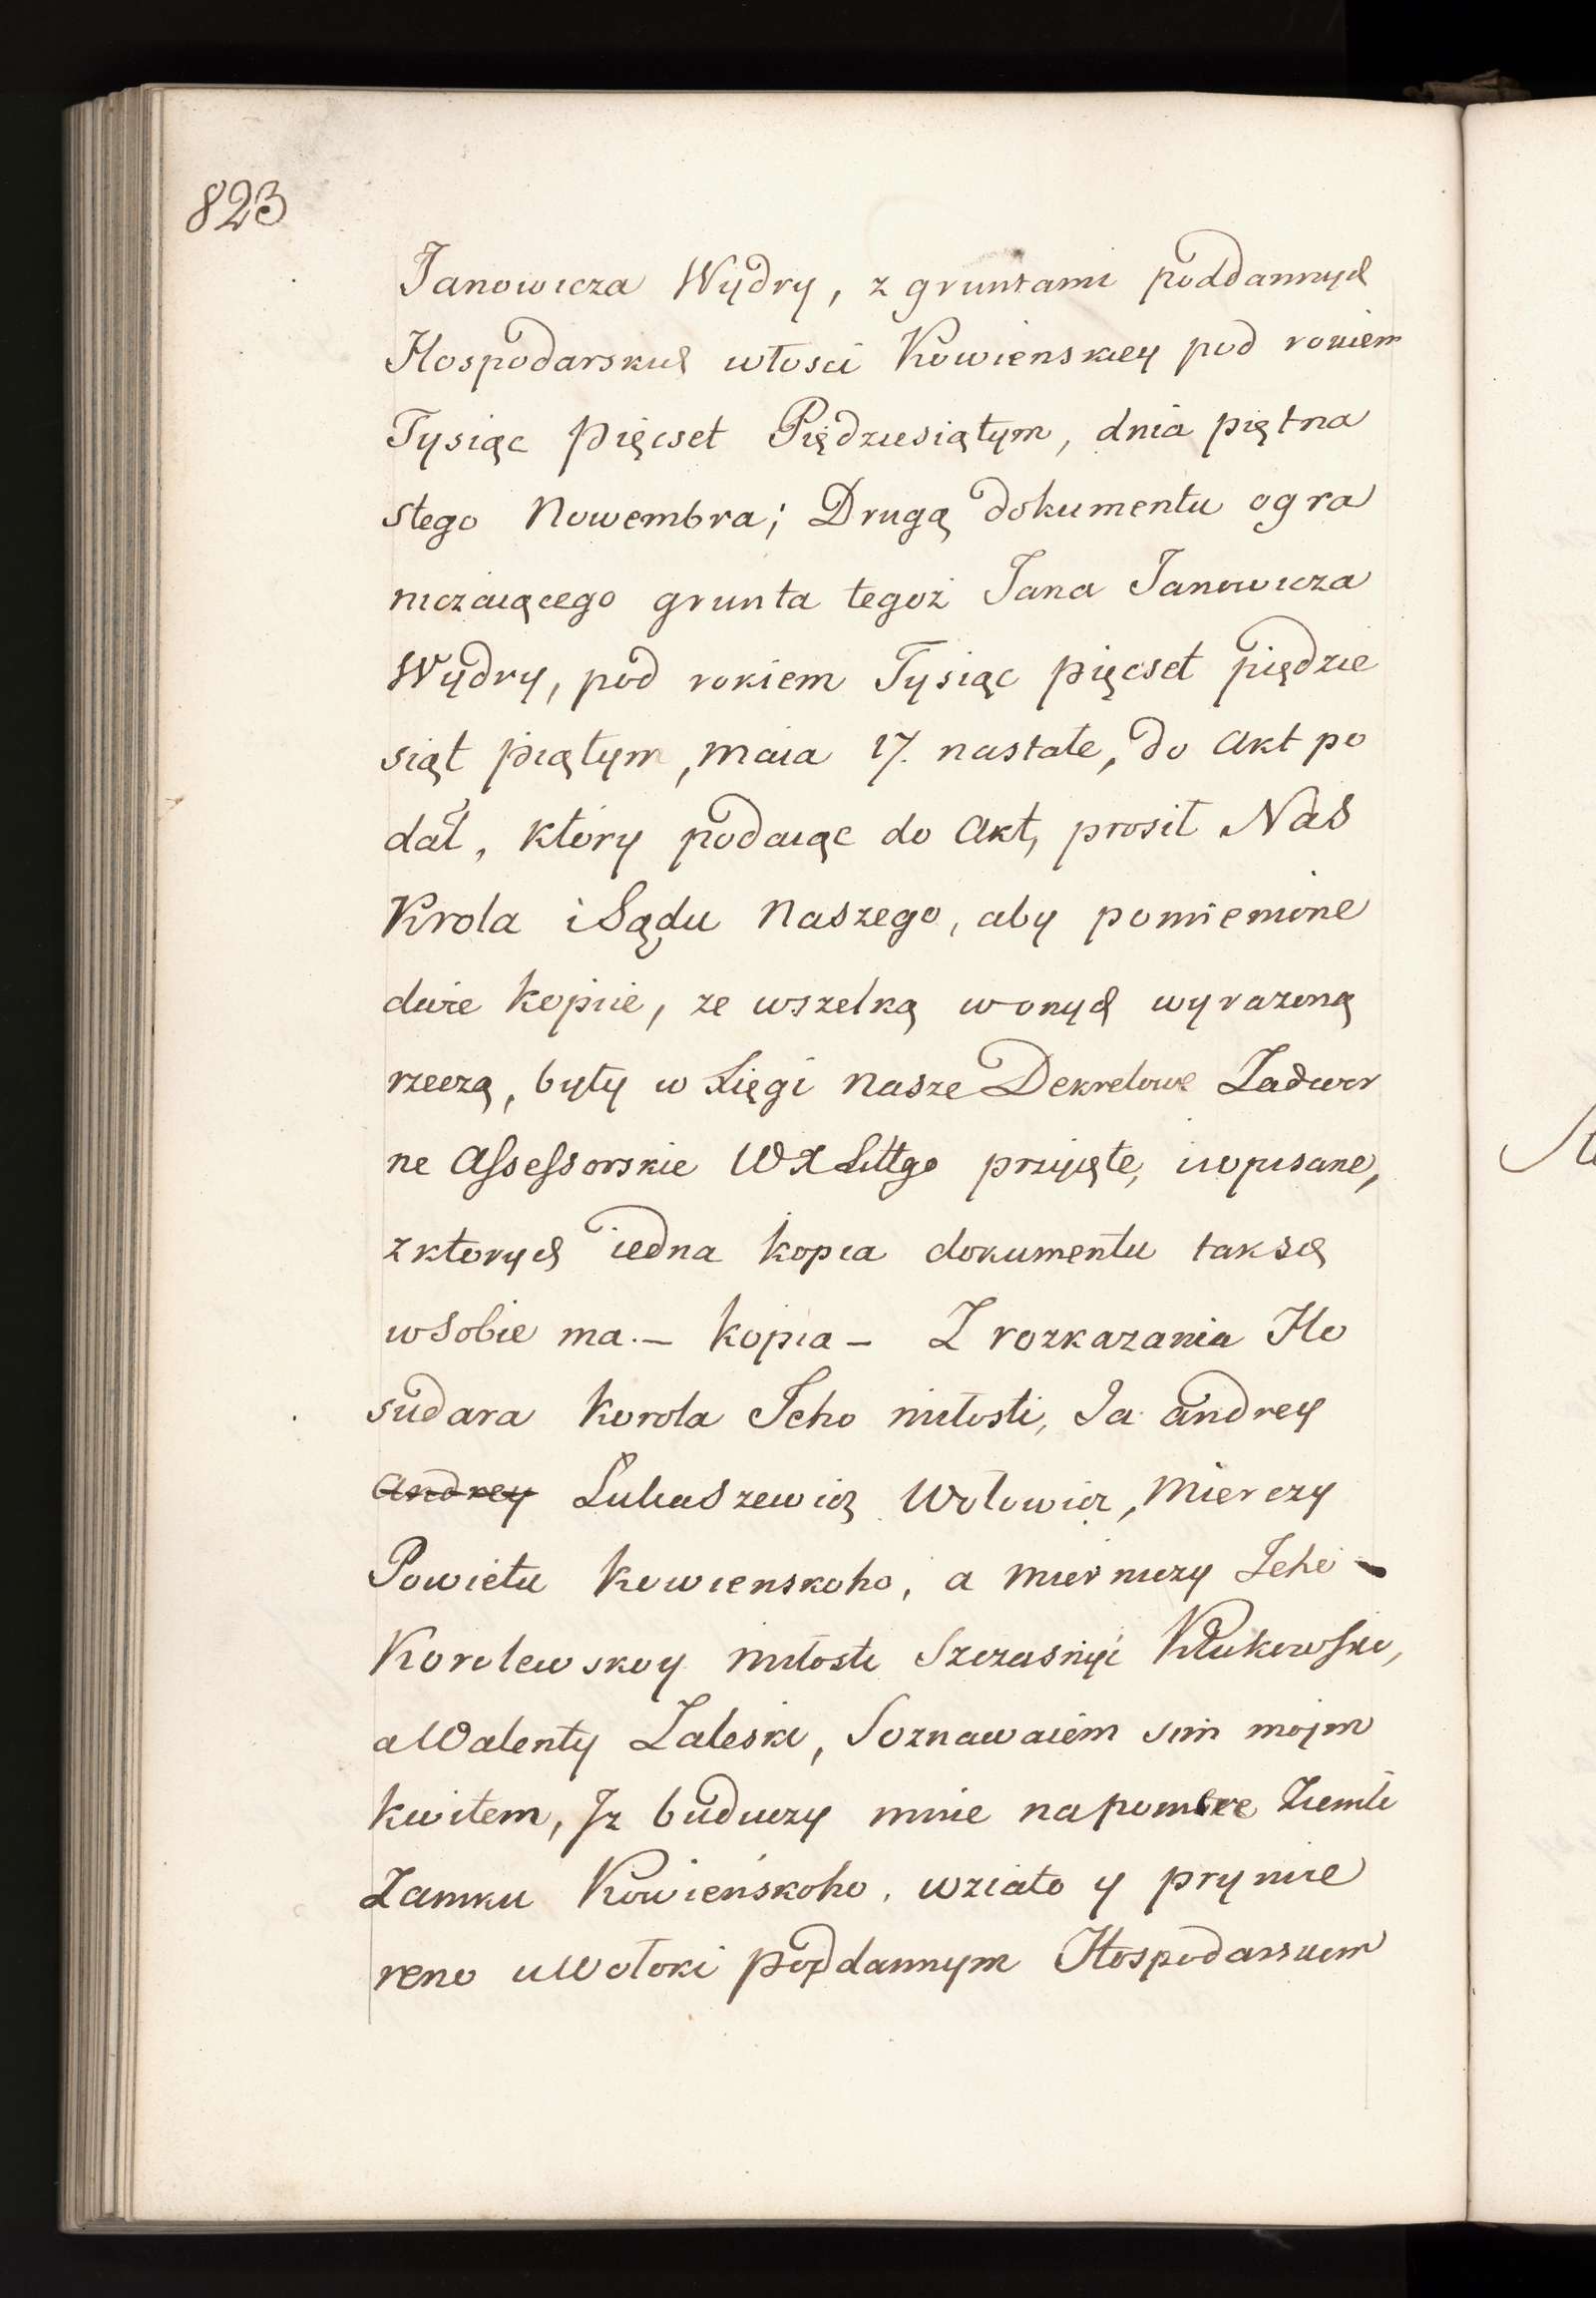 823
Janowicza Wydry, z gruntami poddannych
Hospodarskich włosci Kowienskiey pod rokiem
Tysiąc Pięcset Piędziesiątym, dnia piętna
stego Nowembra; Drugą dokumentu ogra
niczaiącego grunta tegoż Jana Janowicza
Wydry, pod rokiem Tysiąc pięcset piędzie
siąt piątym, maia 17. nastałe, do Akt po
dał, ktory podaiąc do Akt, prosił Nas
Krola i Sądu Naszego, aby pomienione
dwie kopiie, ze wszelką wonych wyrażoną
rzeczą, były w Xięgi Nasze Dekretowe Zadwor
ne Assessorskie WX Littgo przyięte, i wpisane,
z ktorych iedna kopia dokumentu tak się
w sobie ma. — kopia — Z rozkazania Ho
sudara Korola Jeho miłosti, Ja Andrey
Andrey Łukaszewicz Wołowicz, Mierczy
Powietu Kowienskoho, a mierniczy Jeho
Korolewskoy miłosti Szczasnyi Kłukowski,
a Walenty Zaleski, Soznawaiem sim moim
kwitem, Iż buduczy mnie na pomiere Ziemli
Zamku Kowieńskoho, wziato y prymie
reno u Wołoki poddannym Hospodarskim